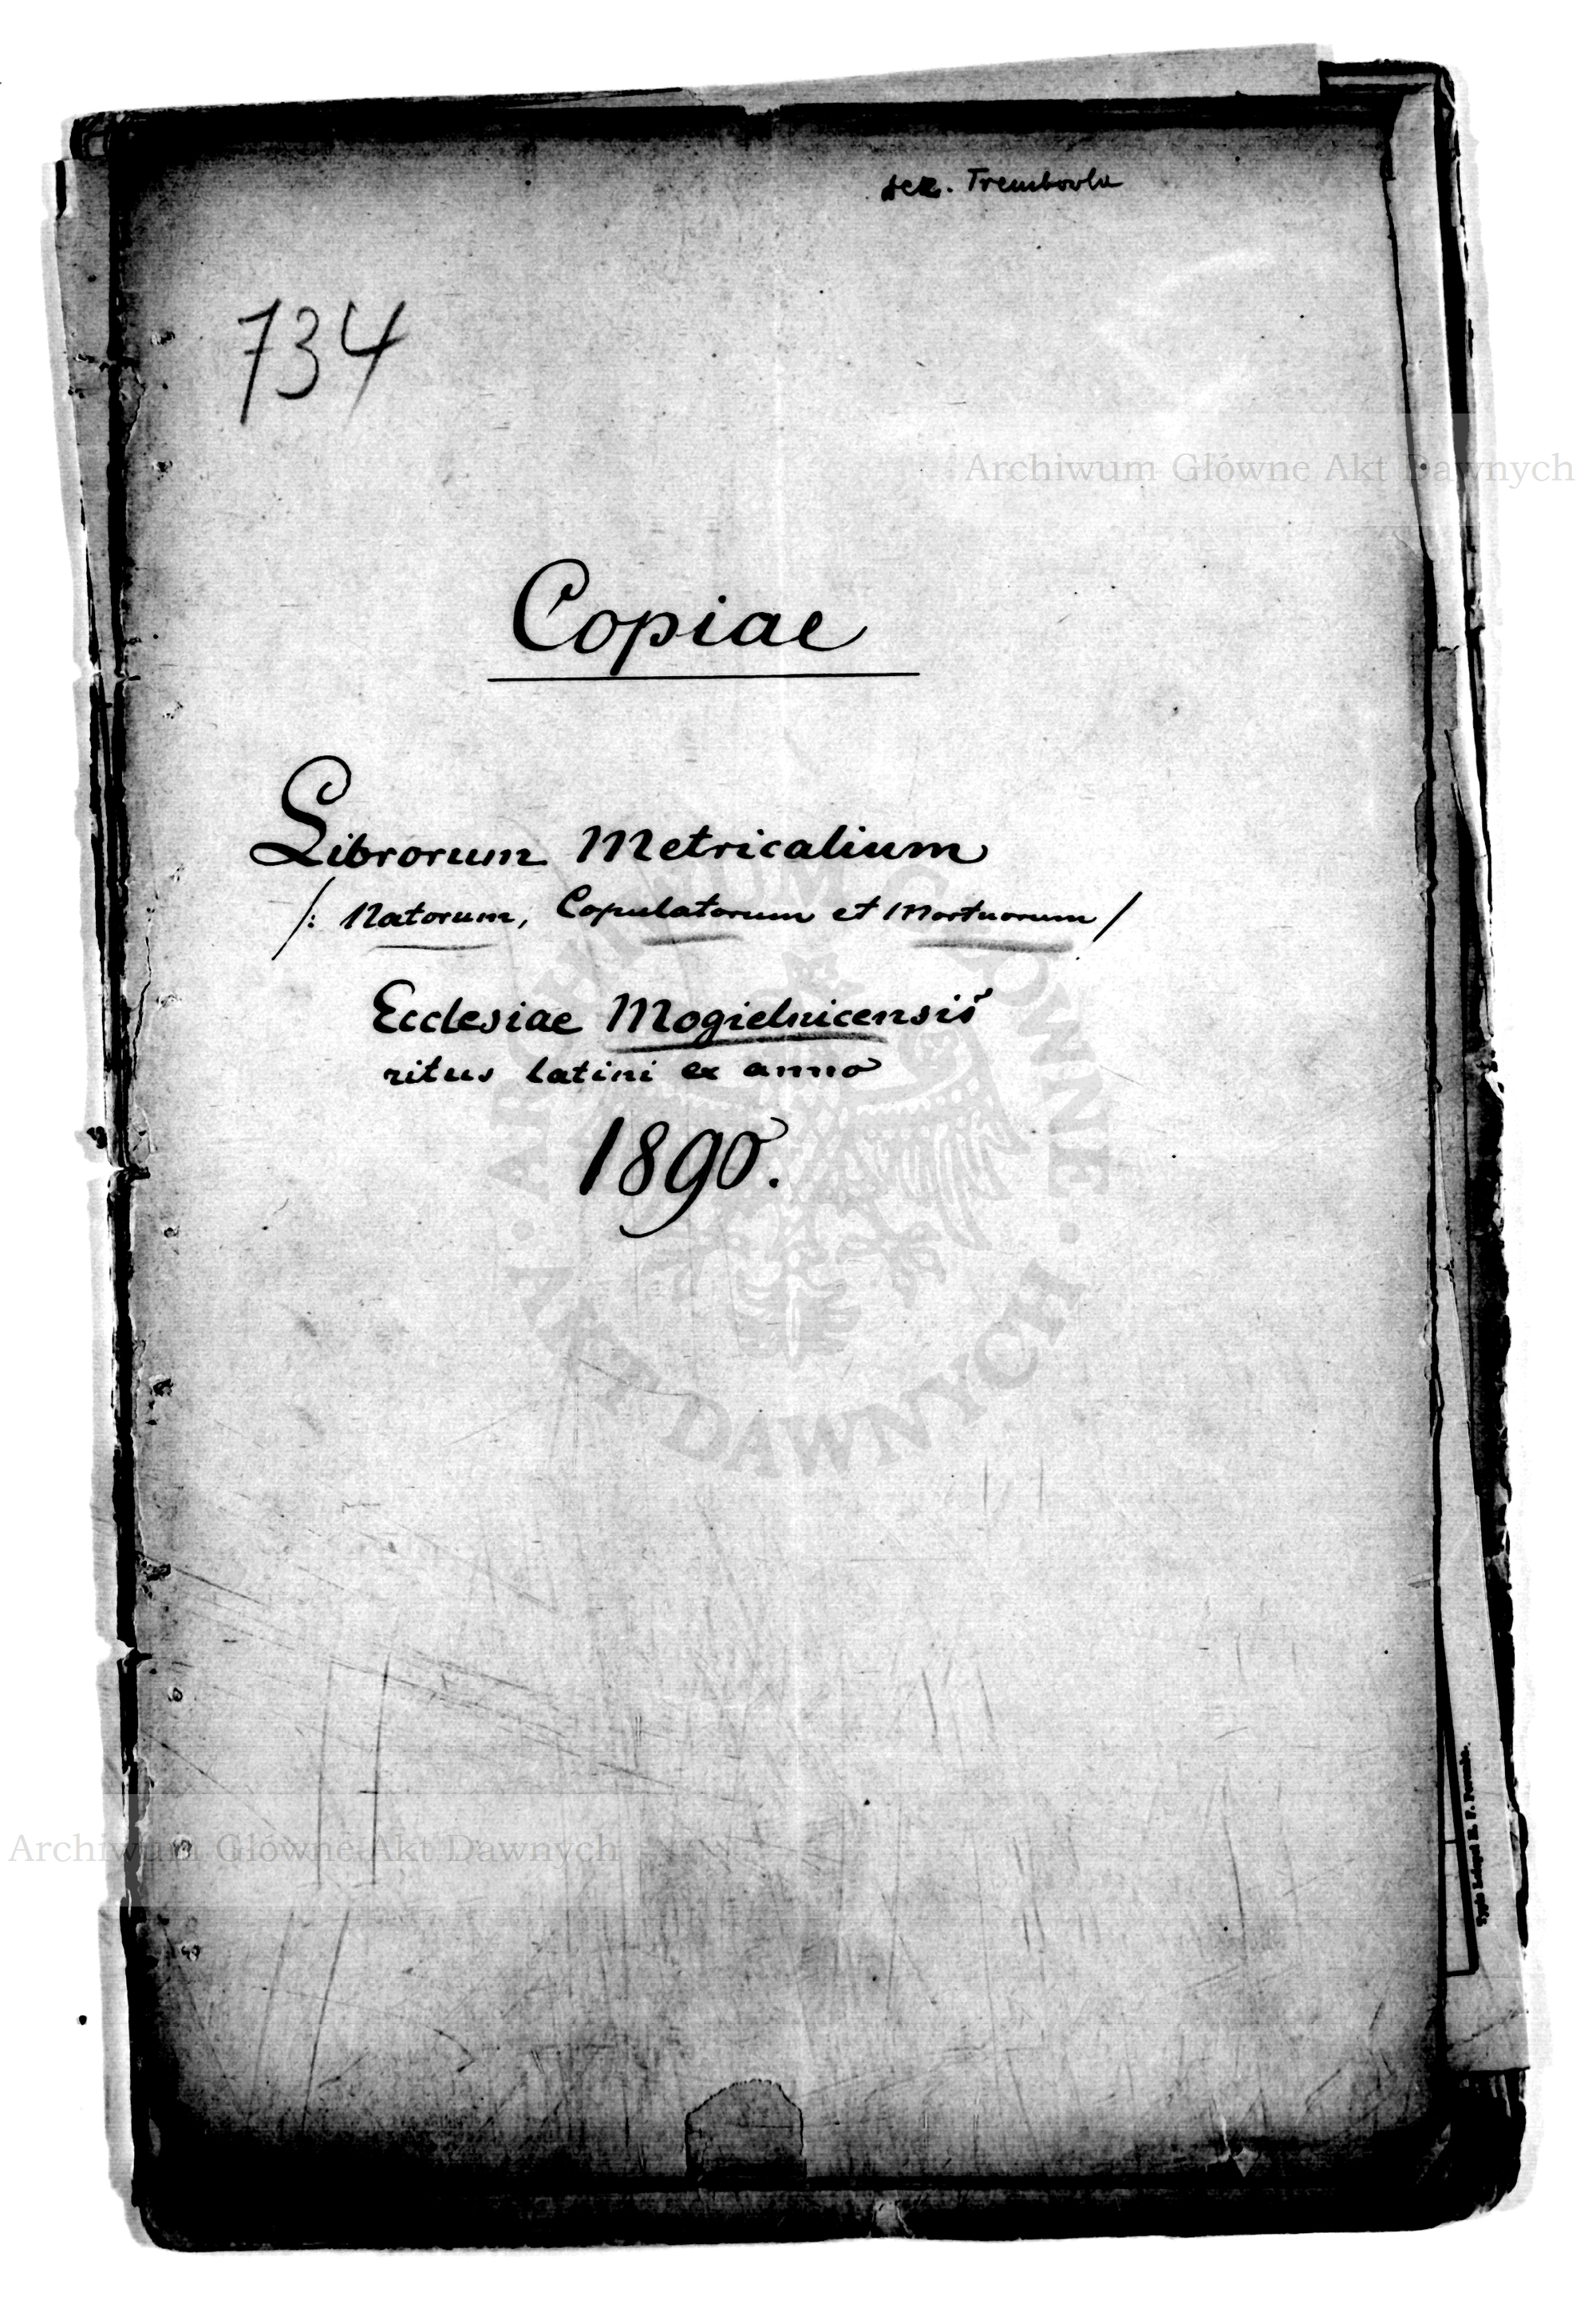 dek. Trembovla
734
Archiwum Główne Akt Dawnych
Copiae
Librorum Metricalium
/: Natorum, Copulatorum et Mortuorum /
Ecclesiae Mogielnicensis
ritus latini ex anno
1890.
ARCHIWUM GŁÓWNE · AKT DAWNYCH ·
Archiwum Główne Akt Dawnych